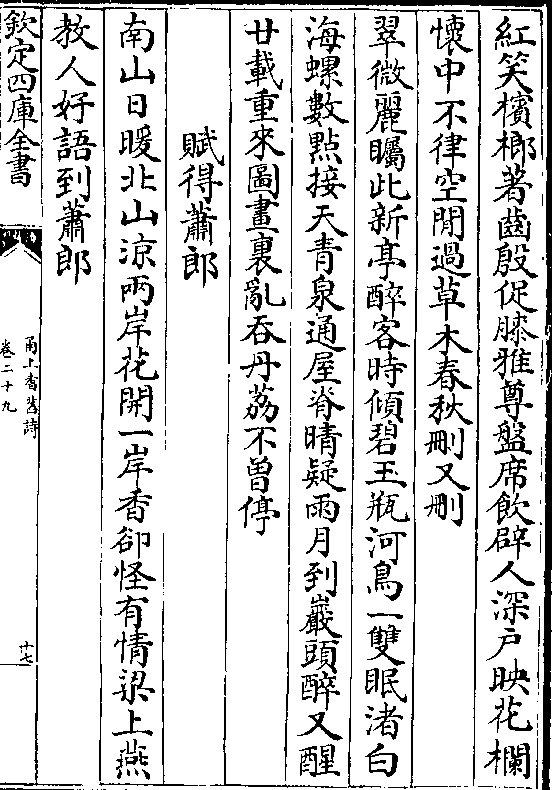 紅笑檳榔著齒殷促膝雅尊盤席飲辟人深戶映花欄
懷中不律空閒過草木春秋刪又刪
翠微麗矚此新亭醉客時傾碧玉瓶河鳥一雙眠渚白
海螺數點接天青泉通屋脊晴疑雨月到巖頭醉又醒
廿載重來圖畫裏亂吞丹荔不曾停
賦得蕭郎
南山日暖北山涼兩岸花開一岸香卻怪有情梁上燕
教人好語到蕭郎
欽定四庫全書
甬上耆舊詩
卷二十九
十七